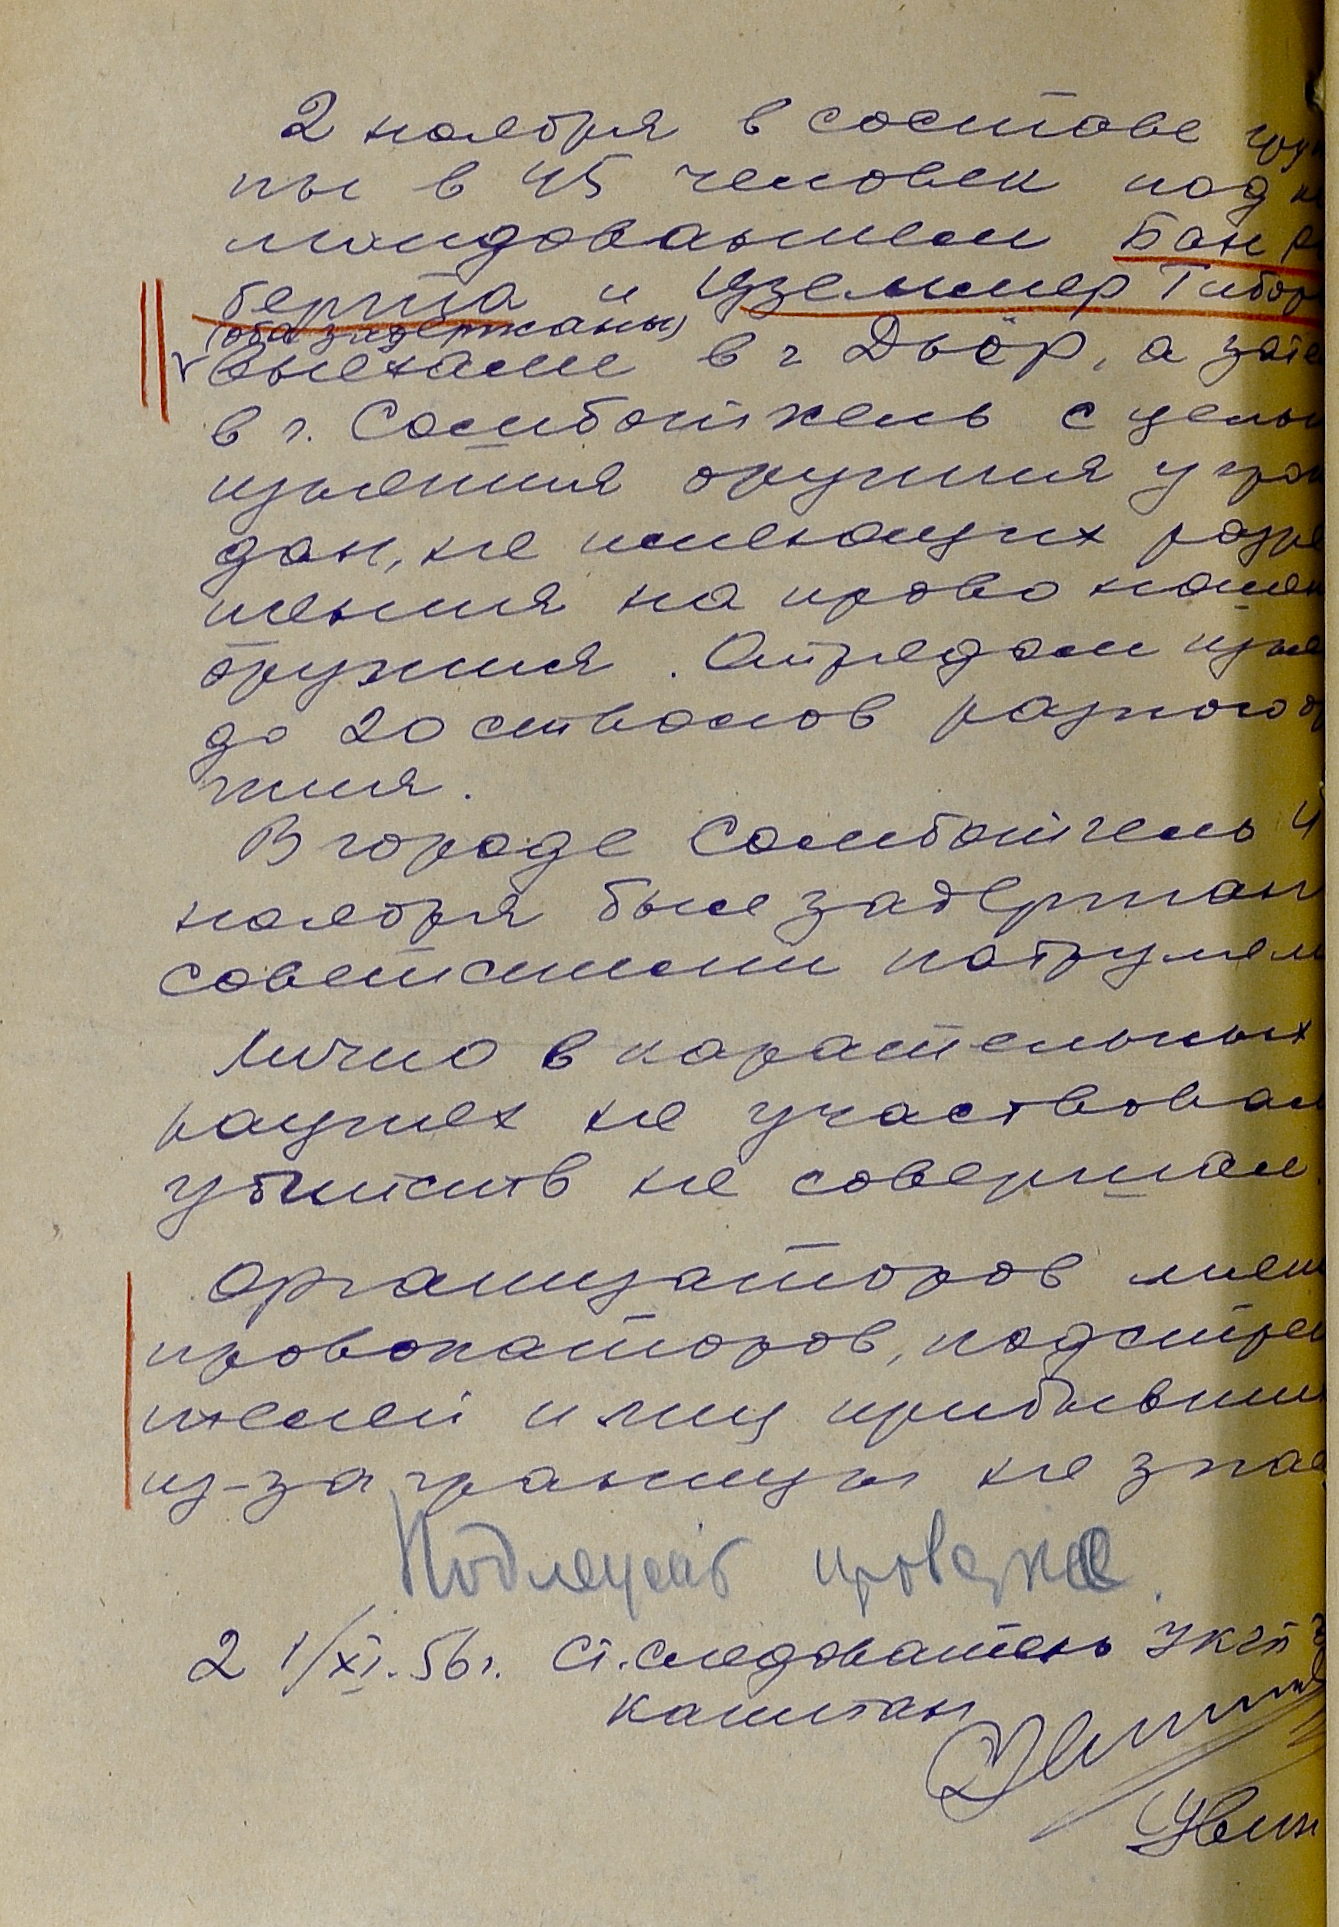 2 ноября в составе груп
пы в 45 человек под к
мандованием Бан Р
берта и Цземмер Тибор
(оба задержаны)
выехали в г Дьёр, а зате
в г. Сомботхель с целью
изъятия оружия у граж
дан, не имеющих разре
шения на право ношен
оружия. Отрядом изъя
до 20 стволов разного ор
жия.
В городе Сомботхель 4
ноября был задержан
советским патрулем
Лично в карательных
рациях не участвовал
убийств не совершал.
Организаторов мят
провокаторов, подстре
телей и лиц прибывших
из-за границы не знае
Подлежит проверке.
2 1/XI. 56 г. Ст. следователь УКГБ
капитан